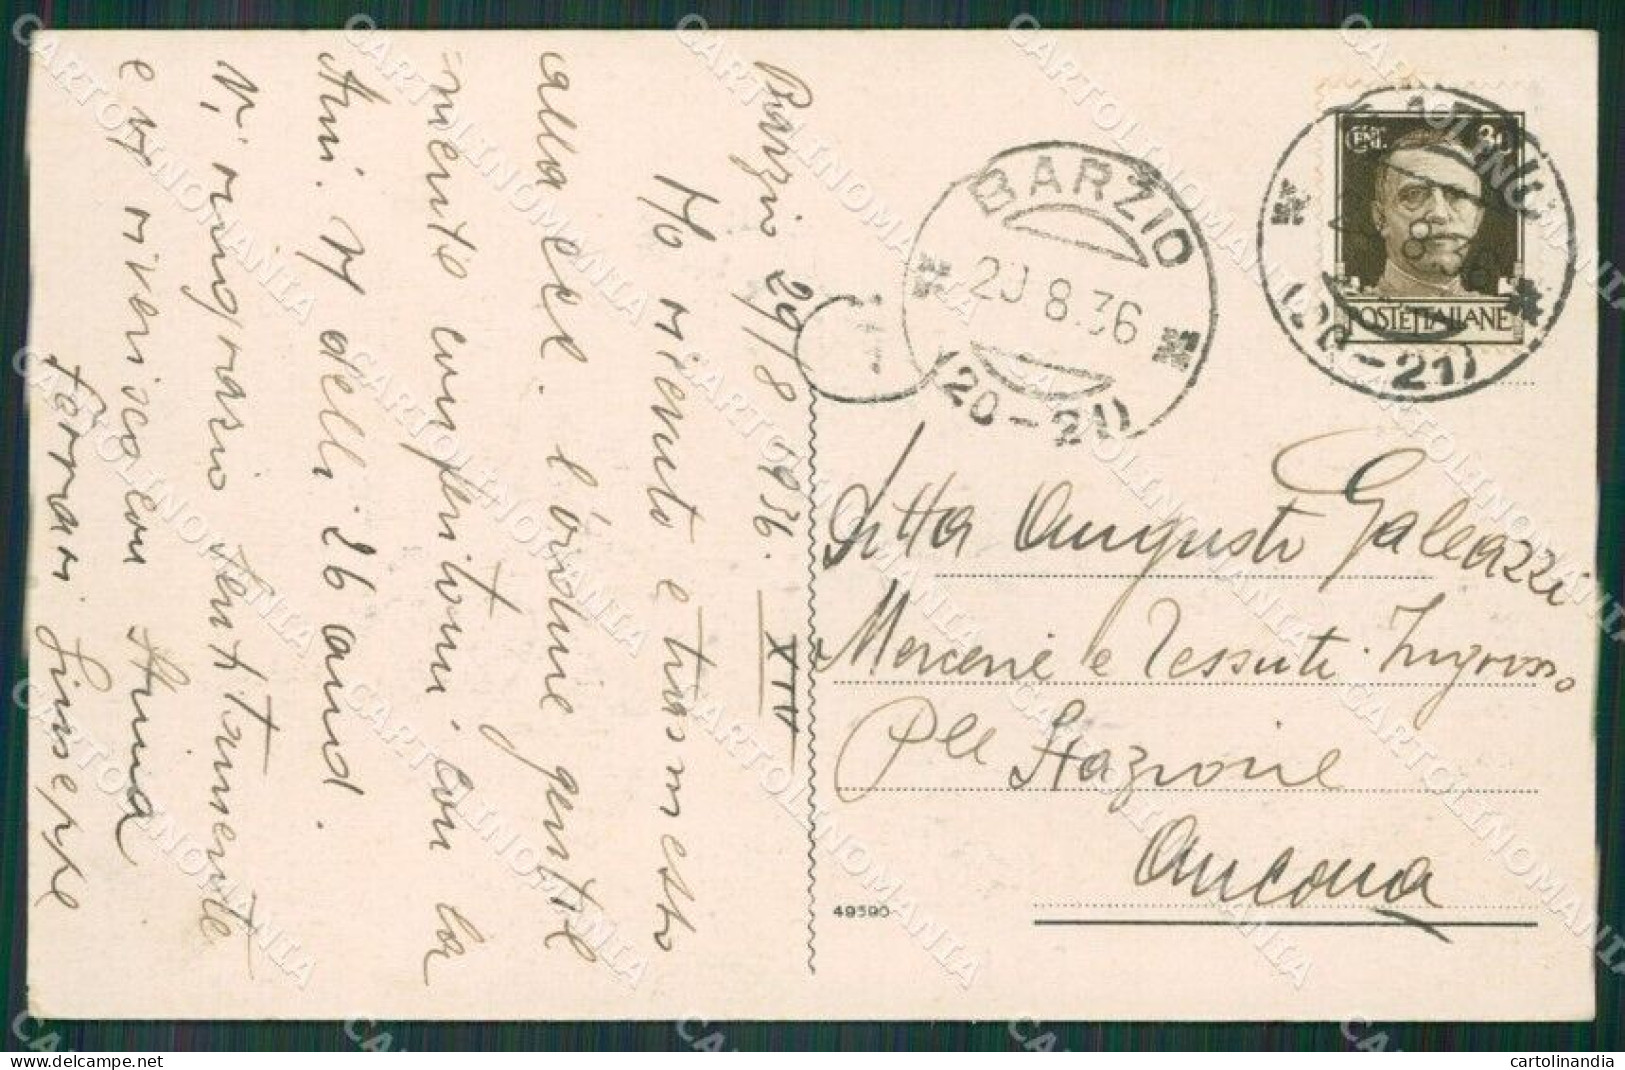 Barzio 29/8 1936. XIV
Ho ricevuto e trasmesso
alla ecc. l'ordine gentil
mente compritomi con la
V delli 26 and.
Vi ringrazio sentitamente
e vi riverisco con stima
Ferrari Giuseppe
BARZIO
20.8.36
(20-21)
CENT. 30
POSTE ITALIANE
BARZIO
(20-21)
Ditta Augusto Galeazzi
Mercerie e Tessuti Ingrosso
Stazione
Ancona
49590
CARTOLINOMANIA
cartolinandia